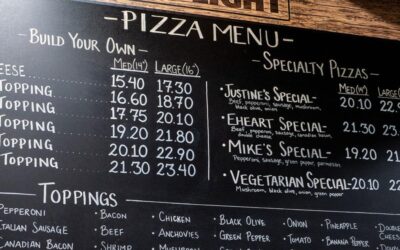 LIGHT
- PIZZA MENU -
- BUILD YOUR OWN -
MED(14") LARGE(16")
EESE 15.40 17.30
TOPPING 16.60 18.70
TOPPING 17.90 20.10
TOPPING 19.20 21.80
TOPPING 20.10 22.90
TOPPING 21.30 23.40
- SPECIALTY PIZZAS -
MED(14") LARGE
- JUSTINE'S SPECIAL- 20.10 22.
Beef, pepperoni, sausage, mushroom,
black olive, onion
- EHEART SPECIAL- 21.30 23.
- MIKE'S SPECIAL- 19.20 21.
Pepperoni, sausage, green pepper, parmesan
- VEGETARIAN SPECIAL- 20.10 22.
Mushroom, black olive, onion, green pepper, tomato
- TOPPINGS -
PEPPERONI • BACON • CHICKEN • BLACK OLIVE • ONION • PINEAPPLE • DOUBLE
ITALIAN SAUSAGE • BEEF • ANCHOVIES • GREEN PEPPER • TOMATO • BANANA PEPPER CHEESE
CANADIAN BACON • SHRIMP • MUSHROOM DOW